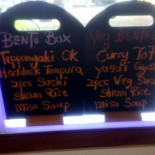 Bento Box
Teppanyaki CK
Haddock Tempura
2pcs Sushi
Steam Rice
Miso Soup
Veg Bento Box
Curry
yasai
2pcs Veg
Steam Rice
Miso Soup